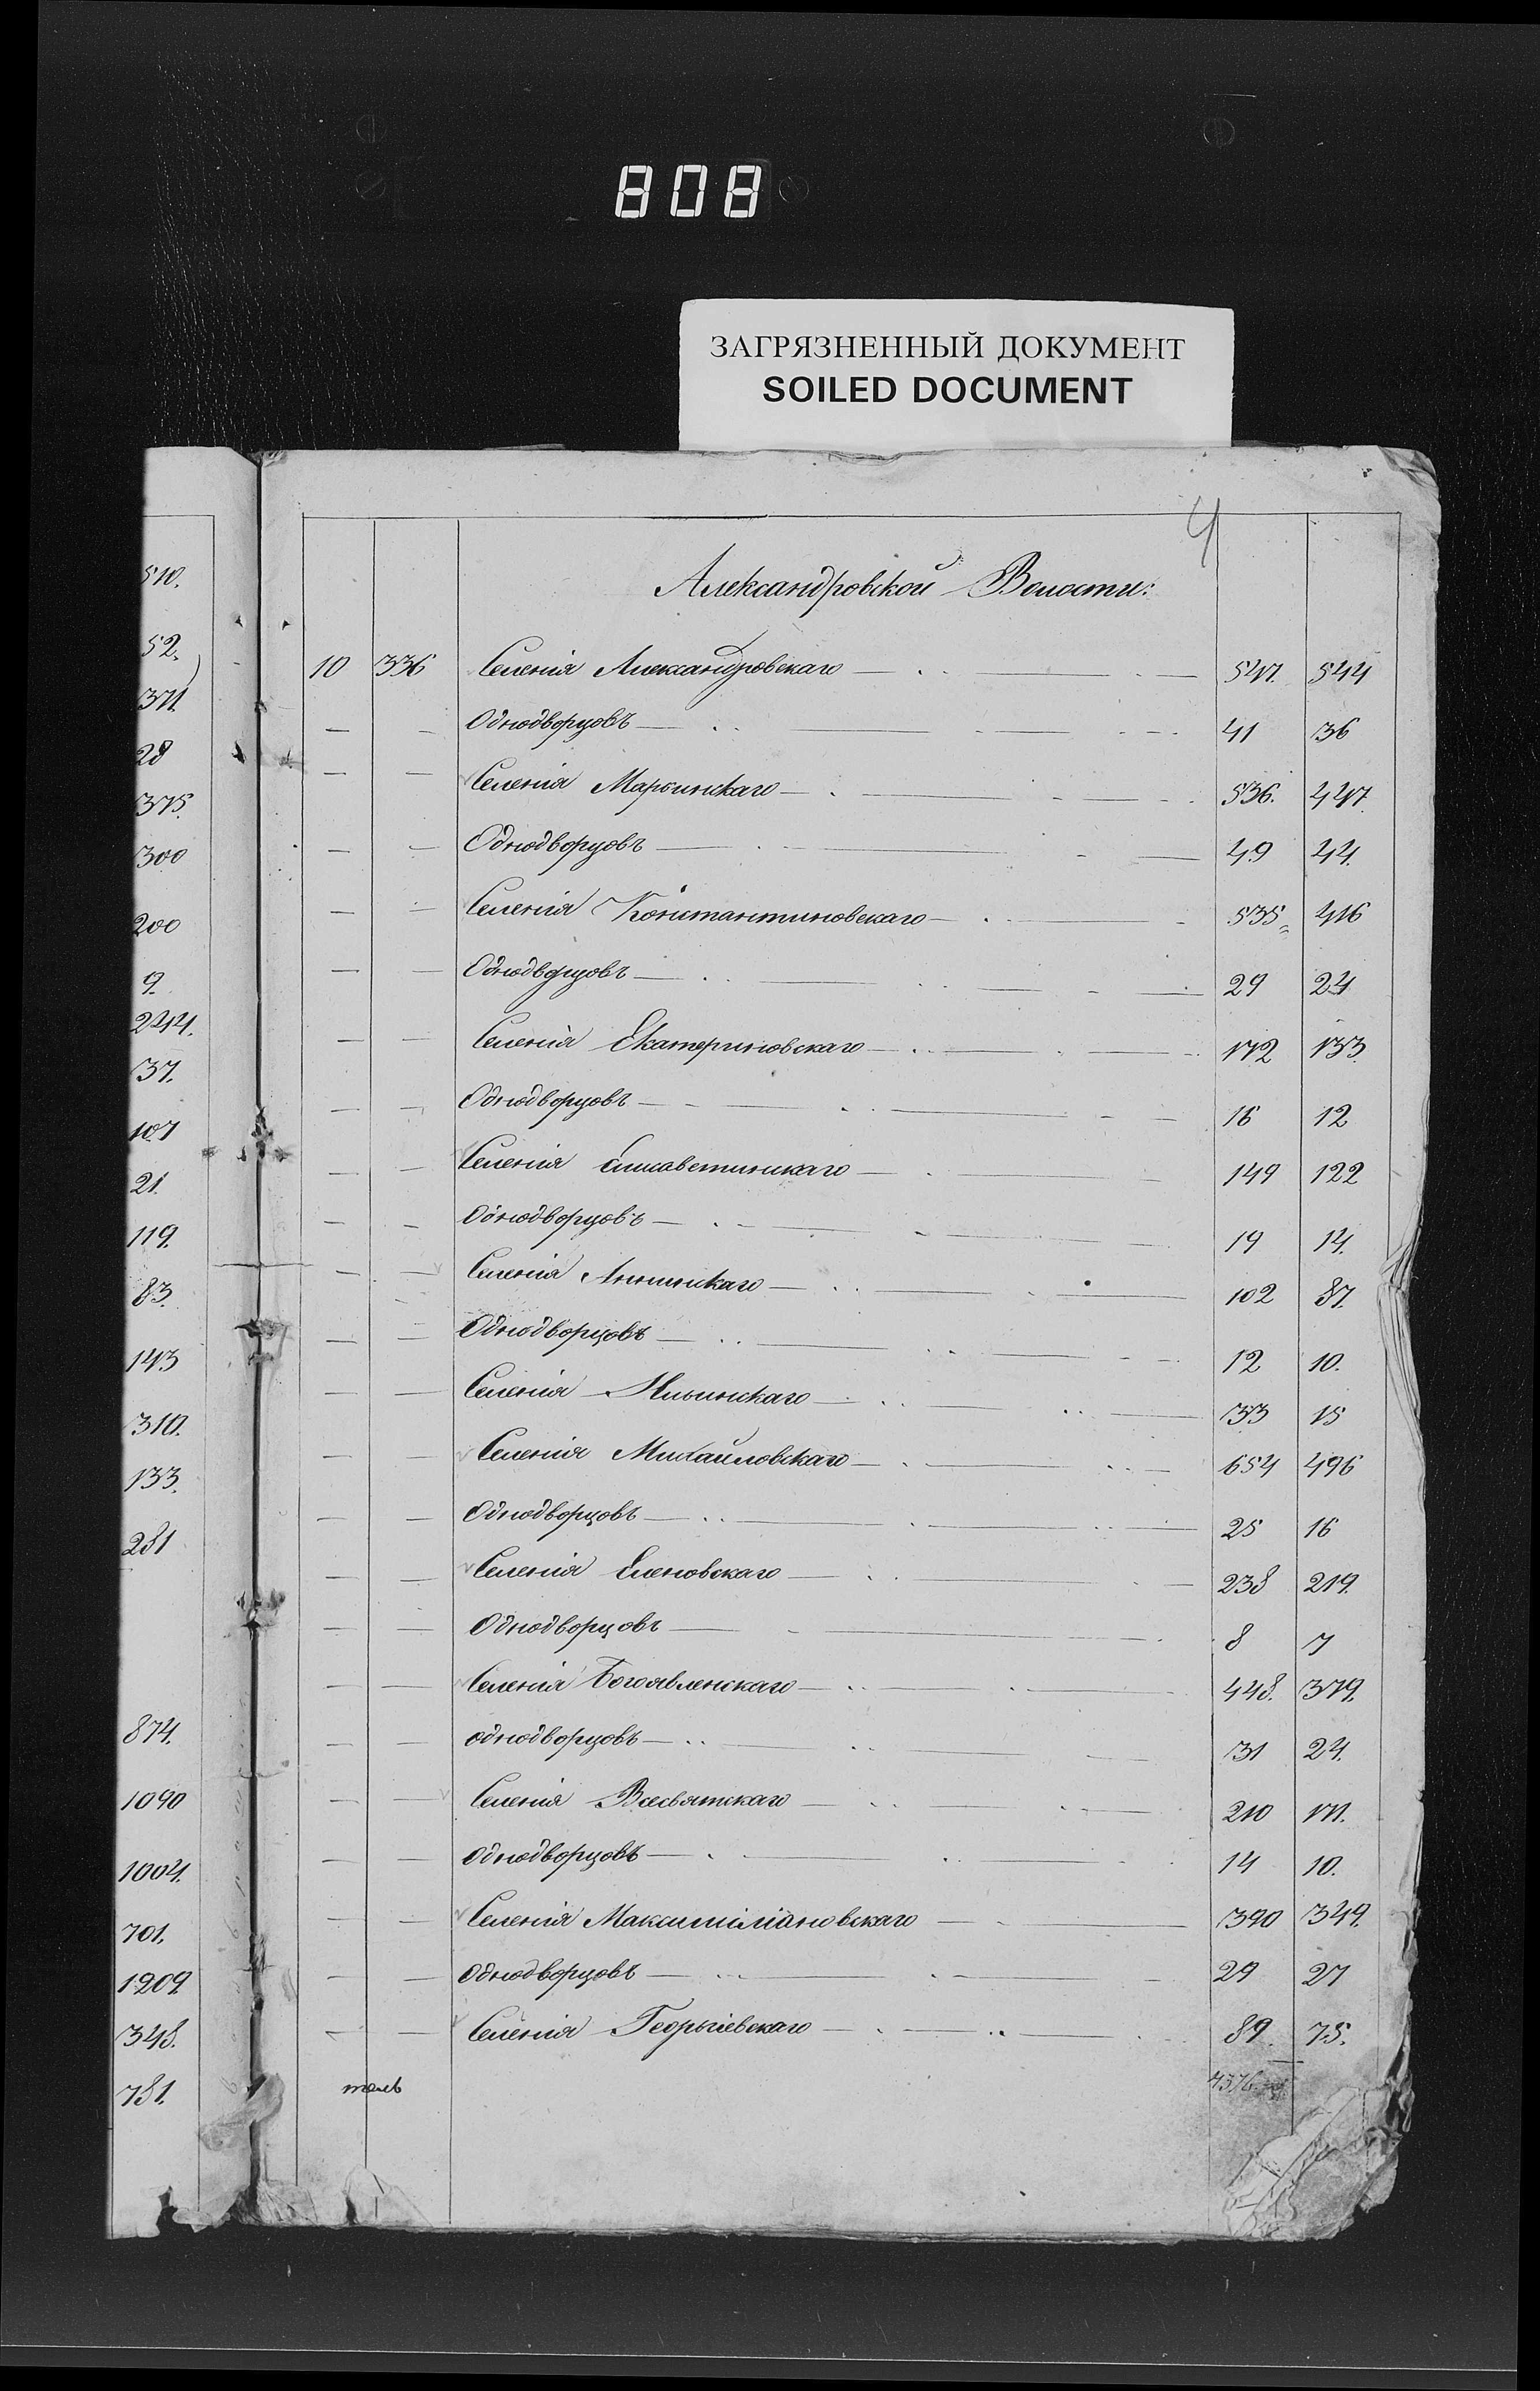 808
ЗАГРЯЗНЕННЫЙ ДОКУМЕНТ
SOILED DOCUMENT
510.
52.
371.
28
375.
300
200
9.
244.
37.
107
21.
119.
83.
143
310.
133.
281
874.
1090
1004.
701.
1209
348.
781.
4
Александровской Волости:
10 336 Селенія Александровскаго — 547. 544
— — Однодворцовъ — 41 36
— — Селенія Марьинскаго — 536. 447.
— — Однодворцовъ — 49 44.
— — Селенія Константиновскаго — 535 416
— — Однодворцовъ — 29 24
— — Селенія Екатериновскаго — 172 133.
— — Однодворцовъ — 16 12
— — Селенія Елисаветинскаго — 149 122
— — Однодворцовъ — 19 14.
— — Селенія Аннинскаго — 102 87.
— — Однодворцовъ — 12 10.
— — Селенія Ильинскаго — 33 15
— — Селенія Михайловскаго — 654 496
— — Однодворцовъ — 25 16
— — Селенія Еленовскаго — 238 219.
— — Однодворцовъ — 8 7
— — Селенія Богоявленскаго — 448. 379.
— — однодворцовъ — 31 24.
— — Селенія Всесвятскаго — 210 171.
— — однодворцовъ — 14 10.
— — Селенія Максиміліановскаго — 390 349.
— — Однодворцовъ — 29 27
— — Селенія Георгіевскаго — 89. 75.
4376